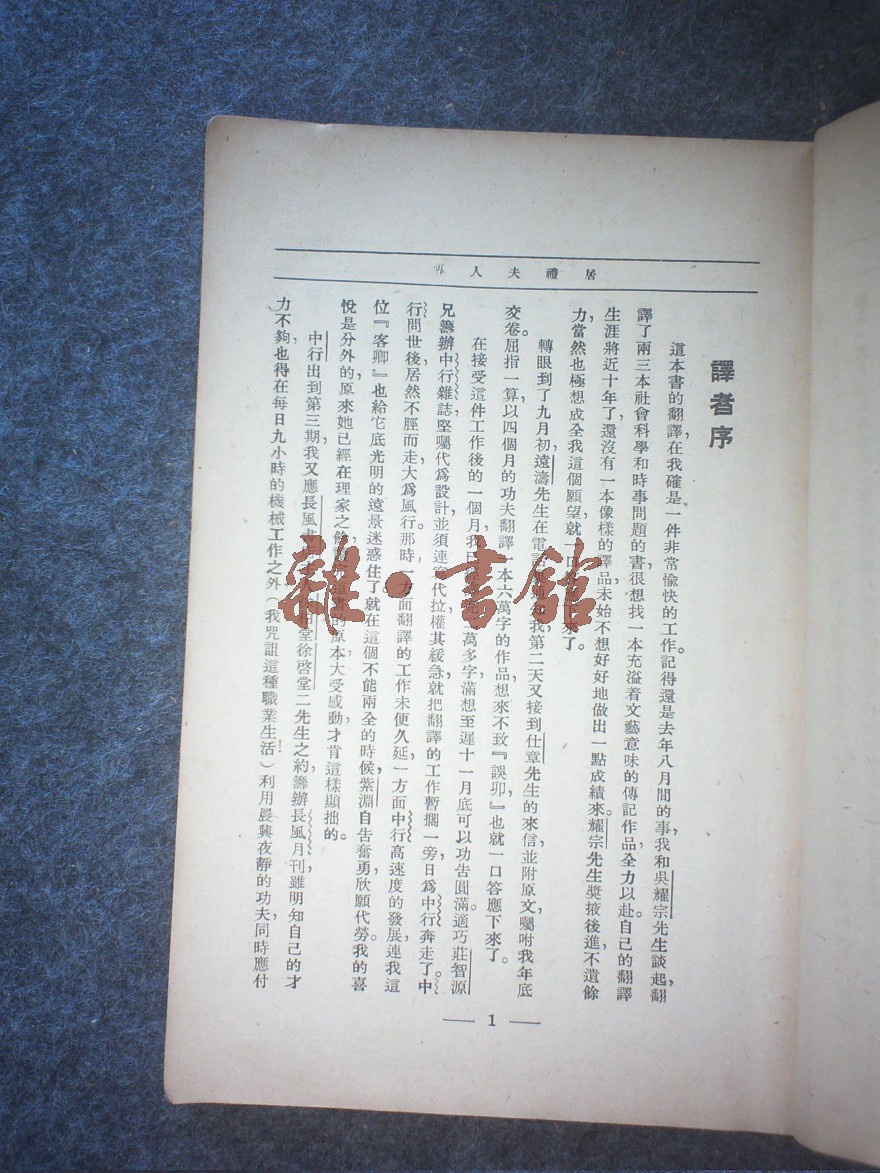 居禮夫人
譯者序
這本書的翻譯,在我確是一件非常愉快的工作。記得還是去年八月間的事,我和吳耀宗先生談起,翻
譯了兩三本社會科學和時事問題的書,很想找一本充溢着文藝意味的傳記作品,全力以赴。自己的翻譯
生涯將近十年了,還沒有一本像樣的譯品,未始不想好好地做出一點成績來。耀宗先生獎掖後進,不遺餘
力,當然也極想成全我這個願望,就一口下來了。
轉眼到了九月初,遠濤先生在電話我,第二天又接到仕章先生的來信,並附原文,囑咐我年底
交卷。屈指一算,以四個月的功夫翻譯一本六萬字的作品,想來不致『誤卯』,也就一口答應下來了。
在接受這件工作後的一個月,我已萬多字,滿想至遲十一月底可以功告圓滿。適巧莊智源
兄籌辦中行雜誌,堅囑代爲設計,並須連案代拉,權其緩急,就把翻譯的工作暫擱一旁,日爲中行奔走了。中
行問世後,居然不脛而走,大爲風行。那時,一方面翻譯的工作未便久延,一方面中行高速度的發展,連我這
位『客卿』也給它底光明的遠景迷惑住了。就在這個不能兩全的時候,紫淵自告奮勇,欣願代勞。我的喜
悅是分外的,原來她已經在理家之餘,這書的原本,大受感動,才肯這樣顯拙的。
中行出到第三期,我又應長風書堂徐啓堂二先生之約,籌辦長風月刊,雖明知自己的才
力不夠,也得在每日九小時的機械工作之外(我咒詛這種職業生活!)利用晨興夜靜的功夫,同時應付
— 1 —
雜·書館